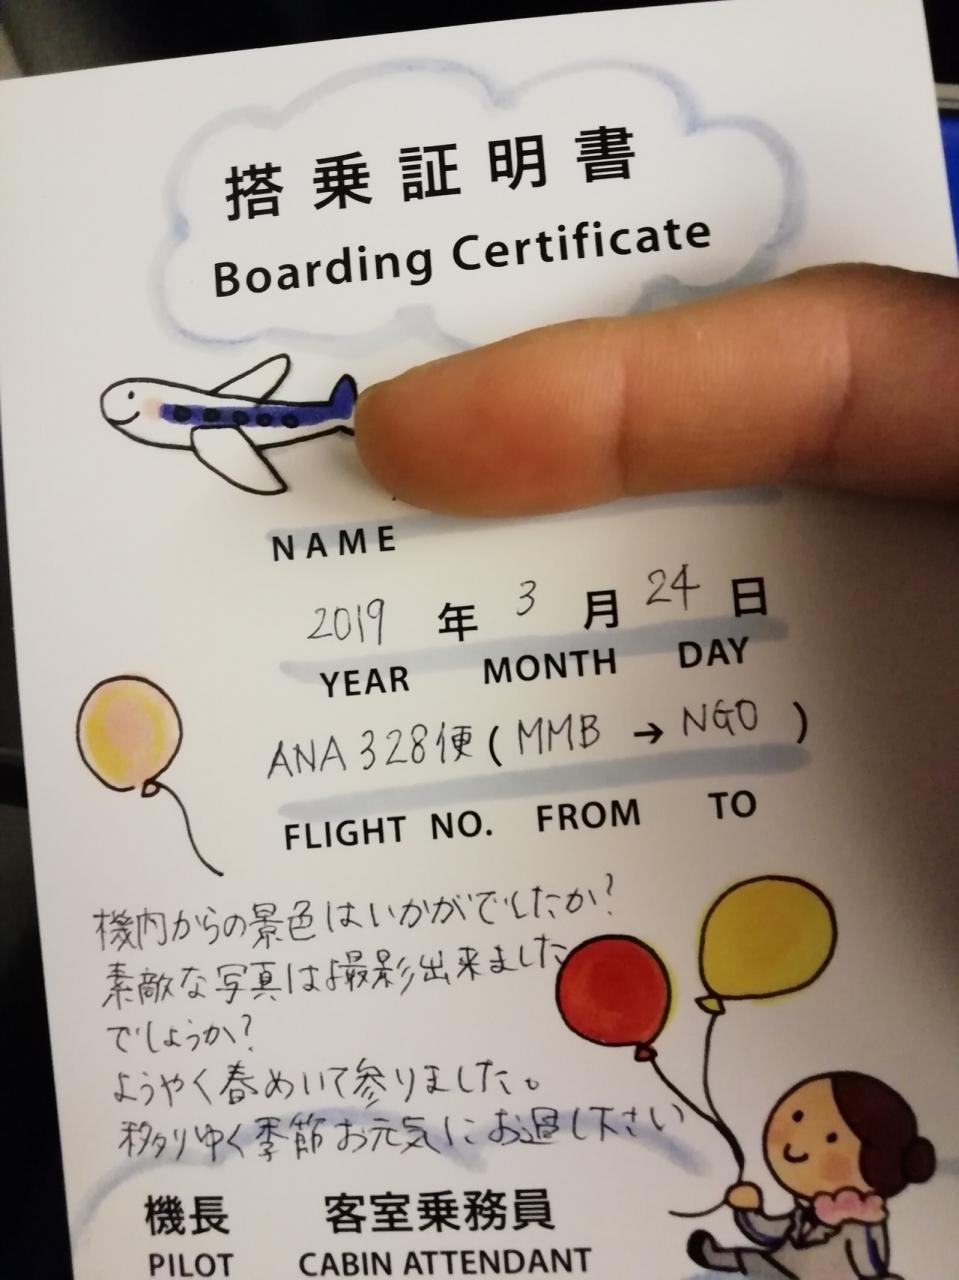 搭乗証明書
Boarding Certificate
NAME
2019 年 3 月 24 日
YEAR MONTH DAY
ANA 328便 ( MMB → NGO )
FLIGHT NO. FROM TO
機内からの景色はいかがでしたか?
素敵な写真は撮影出来ました
でしょうか?
ようやく春めいて参りました。
移りゆく季節お元気にお過し下さい
機長 客室乗務員
PILOT CABIN ATTENDANT